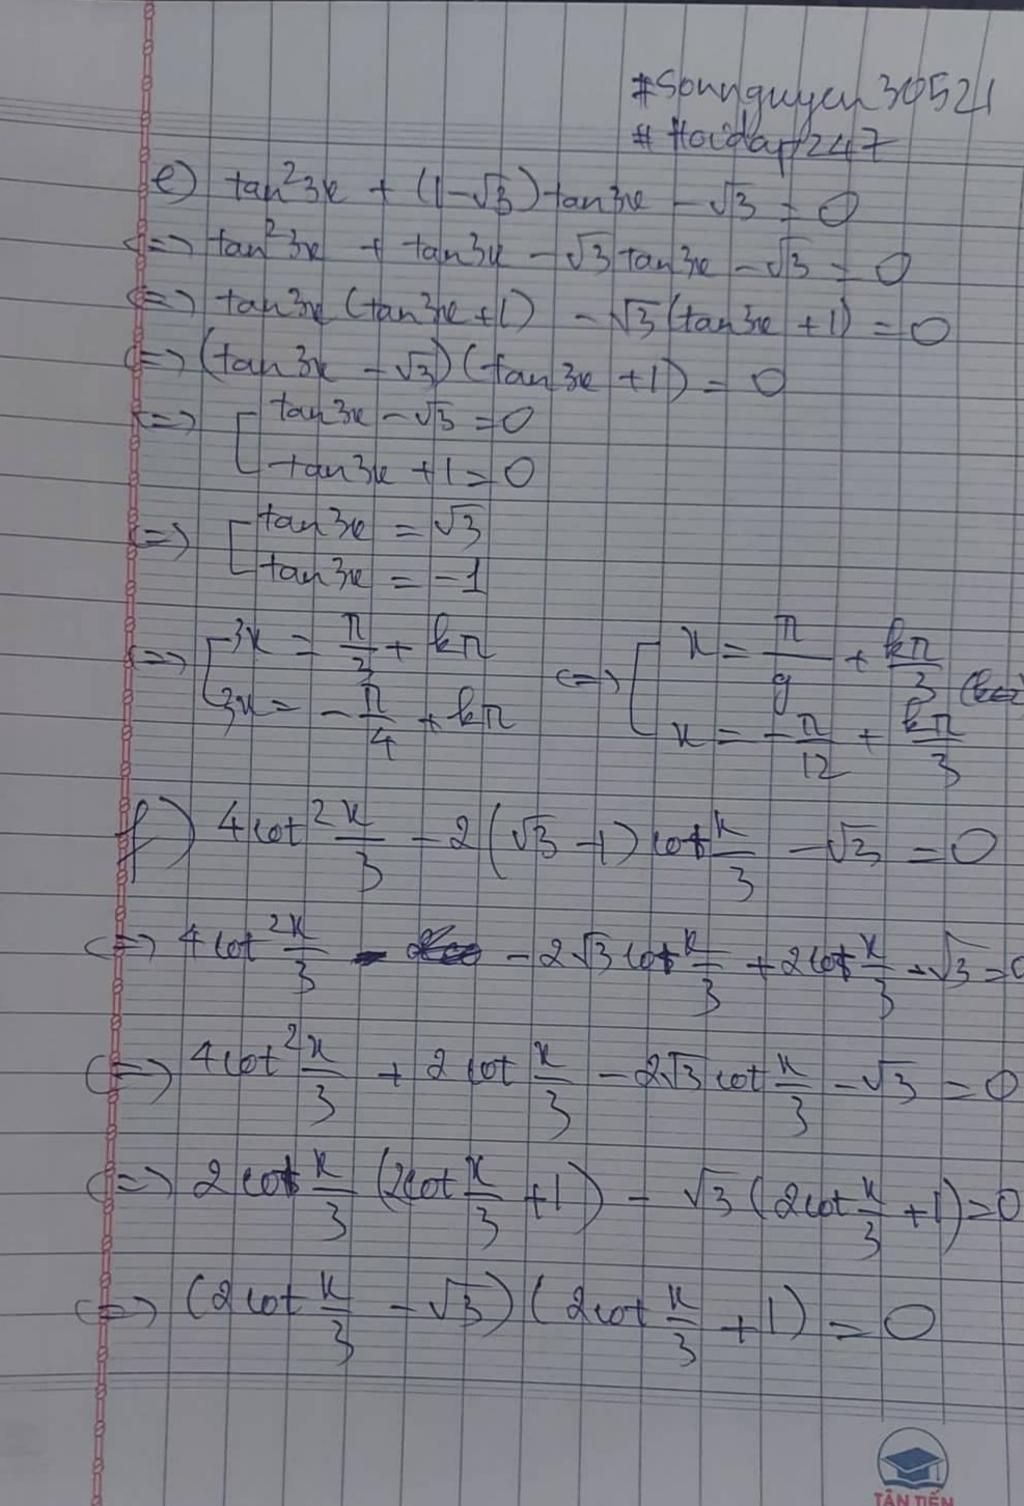 #sonnguyen30521
#Hoidap247
e) tan²3x + (1-√3)tan3x - √3 = 0
<=> tan²3x + tan3x - √3 tan3x - √3 = 0
<=> tan3x (tan3x +1) - √3 (tan3x +1) = 0
<=> (tan3x - √3) (tan3x +1) = 0
<=> [ tan3x - √3 = 0
tan3x +1 = 0
<=> [ tan3x = √3
tan3x = -1
<=> [ 3x = π/3 + kπ <=> [ x = π/9 + kπ/3
3x = -π/4 + kπ x = -π/12 + kπ/3
f) 4cot² x/3 - 2(√3 -1) cot x/3 - √3 = 0
<=> 4cot² x/3 - 2√3 cot x/3 + 2cot x/3 - √3 = 0
<=> 4cot² x/3 + 2cot x/3 - 2√3 cot x/3 - √3 = 0
<=> 2cot x/3 (2cot x/3 +1) - √3 (2cot x/3 +1) = 0
<=> (2cot x/3 - √3) (2cot x/3 +1) = 0
TÂN TIẾN